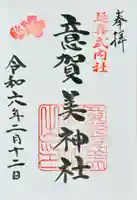 奉拝
延喜式内社
意賀美神社
令和六年二月十一日